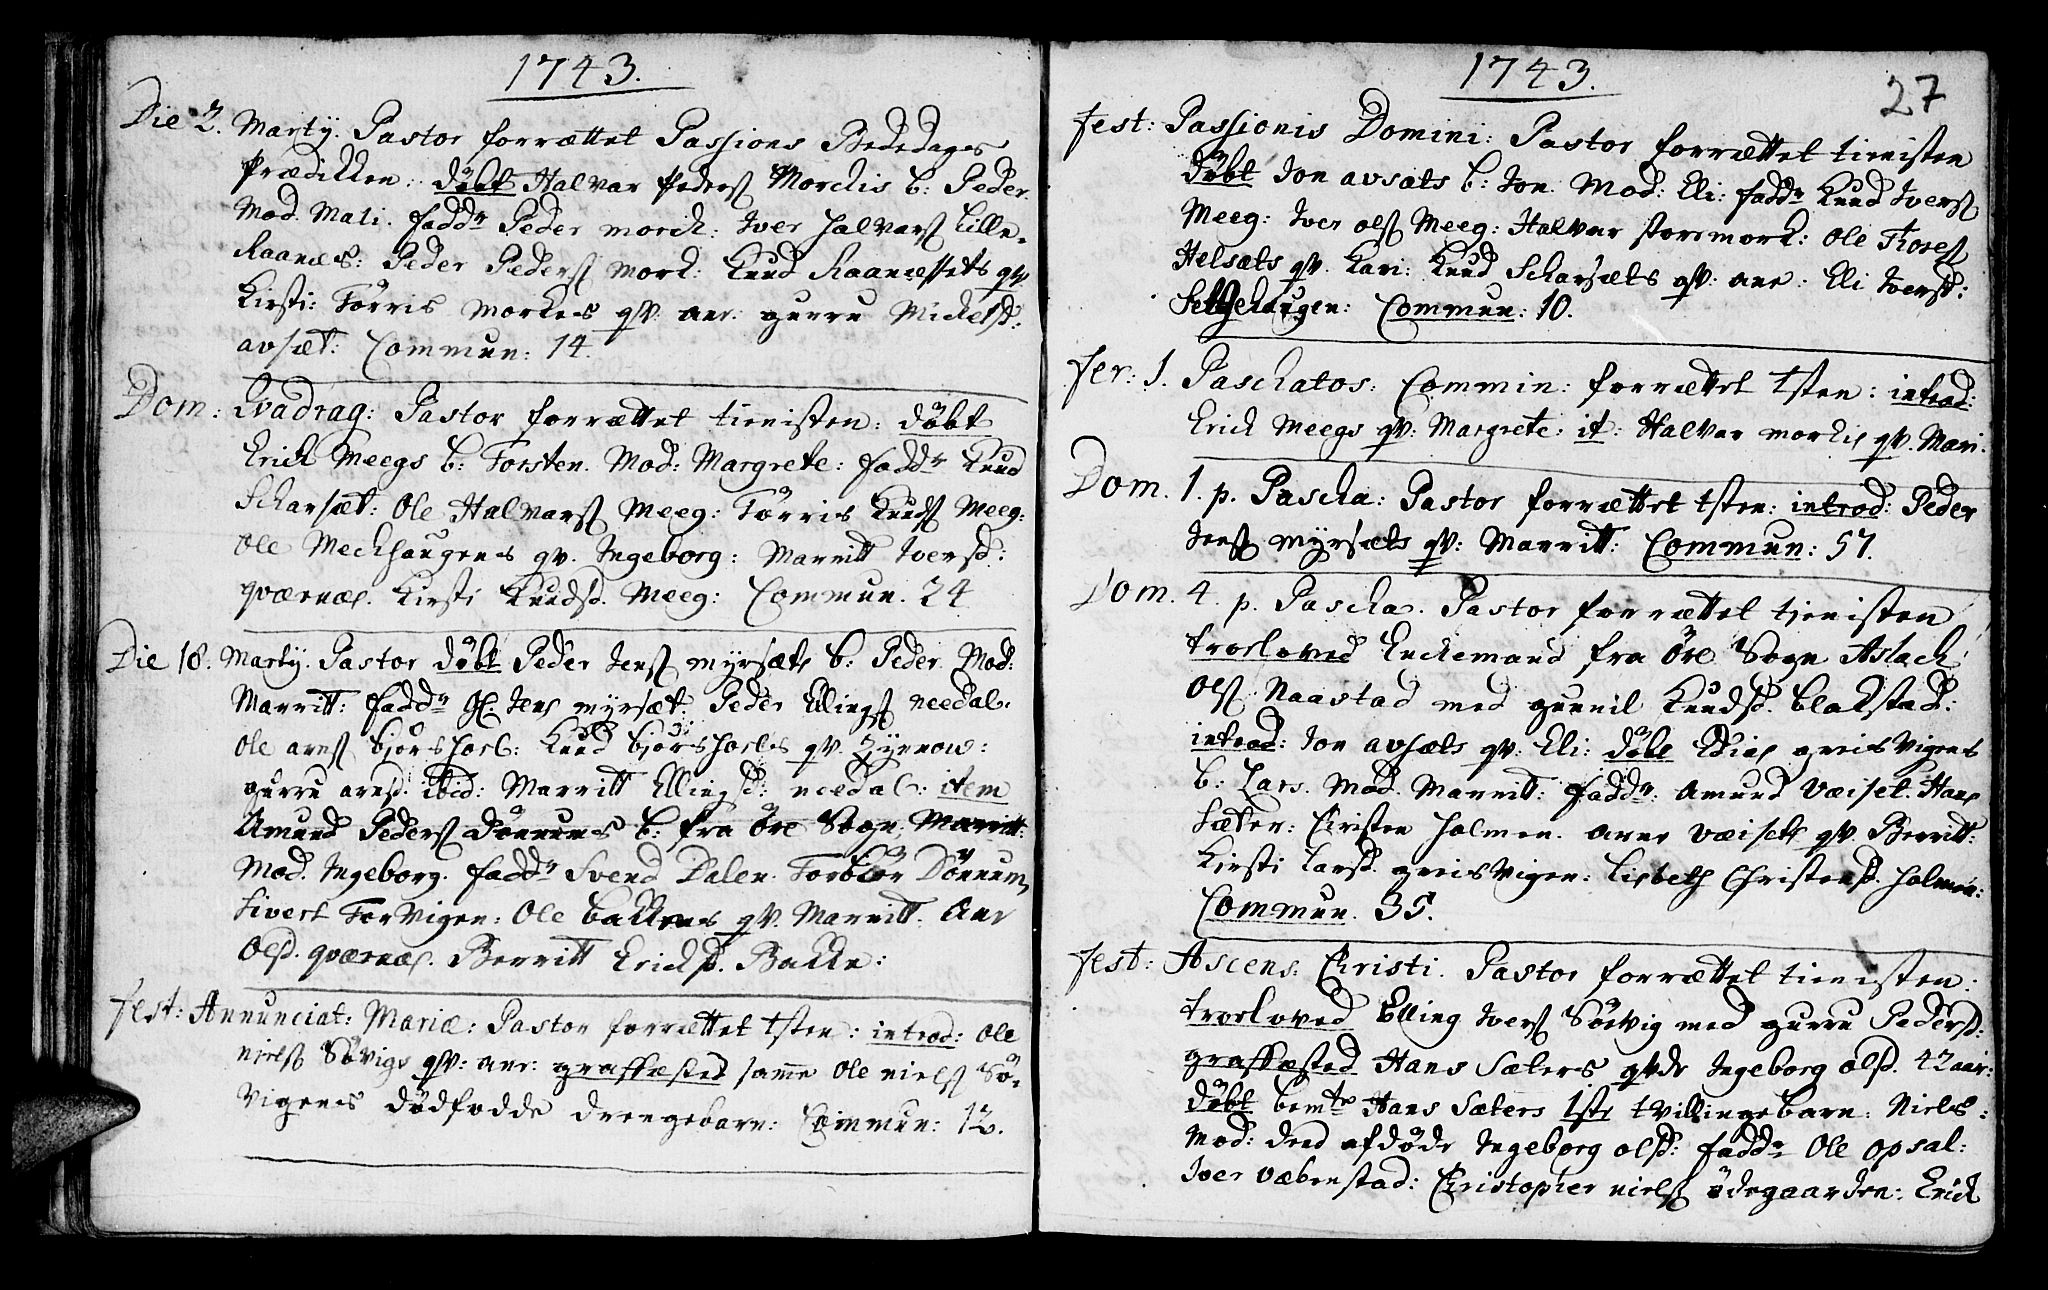 1743.
Die 2. Martij. Pastor forrættet Passions Bededags
Prædikken: döbt Halvar Pederß Morckis b: Peder.
Mod. Mali. fadd.r Peder morck: Iver Halvarß Lille-
Raanes: Peder Pederß Mork: Knud Raanæssets qv.
Kirsti: Törris Morkes qv. ane: gurru Mickelsd:
avsæt: Commun: 14.
Dom: Qvadrag: Pastor forrættet tienisten: döbt
Erick Meegs b: Torsten. Mod: Margrete: fadd.r Knud
Scharsæt: Ole Halvarß Meeg: Törris Knudß Meeg:
Ole Meckhaugens qv. Ingeborg: Marritt Iversd:
qværnæs. Kirsti Knudsd. Meeg: Commun. 24
Die 18. Martij. Pastor döbt Peder Jenß myrsæts b: Peder. Mod:
Marritt: fadd.r Gl. Jens myrsæt. Peder Ellingß needal.
Ole arnß bjørshoel: Knud bjørshoels qv. Zyrrow:
gurru arnsd. ibid: Marritt Ellingsd: needal: item
Amund Pederß Dönnums b: fra Öre Sogn: Marritt:
Mod. Ingeborg. fadd.r Svend Dalen. Torbiör Dönnum,
Sivert Torvigen: Ole bakkens qv. Marritt. Ane
Olsd. qværnæs. Berritt Ericksd. Bakke:
fest: Annunciat: Mariæ: Pastor forrættet tsten: introd: Ole
nielß Sövigs qv: ane: graffæsted samme Ole nielß Sö-
vigens dödfödde drengebarn: Commun: 12.
1743.
27
fest: Passionis Domini: Pastor forrættet tienisten
döbt Jon avsæts b: Jon. Mod: Eli: fadd.r Knud Iverß
Meeg: Iver olß Meeg: Halvar stormork: Ole Toreß
Helsæts qv. Kari: Knud Scharsæts qv: ane: Eli Iversd:
Selgehaugen: Commun: 10.
fer: 1. Paschatos: Commin: forrættet tsten: introd:
Erick Meegs qv: Margrete: it: Halvar morkis qv. Mari.
Dom. 1. p. Pascha: Pastor forrættet tsten: introd: Peder
Jenß myrsæts qv: Marritt: Commun: 57.
Dom. 4. p. Pascha. Pastor forrættet tjenisten
trorloved Enckemand fra Öre Sogn Aslack
Olß Naastad med gunnil Knudsd. blakstad:
introd: Jon avsæts qv: Eli: döbt Edis greisvigens
b: Lars. Mod. Marritt: fadd.r: Amund Væiset. Hans
Sæter: Christen Holmen. Arne Væisets qv. Berritt:
Kirsti Larsd. greisvigen: Lisbeth Christensd. Holmen:
Commun. 35.
fest: Ascens: Christi. Pastor forrættet tienisten:
trorloved Elling Iverß Söevig med gurru Pedersd:
graffæsted Hans Sæters qvde Ingeborg olsd. 42 aar:
döbt bem.te Hans Sæters 1ste tvillingebarn: Niels:
Mod: dend afdöde Ingeborg olsd: fadd.r Ole opsal:
Iver væbenstad: Christopher nielß ödegaarden: Erick